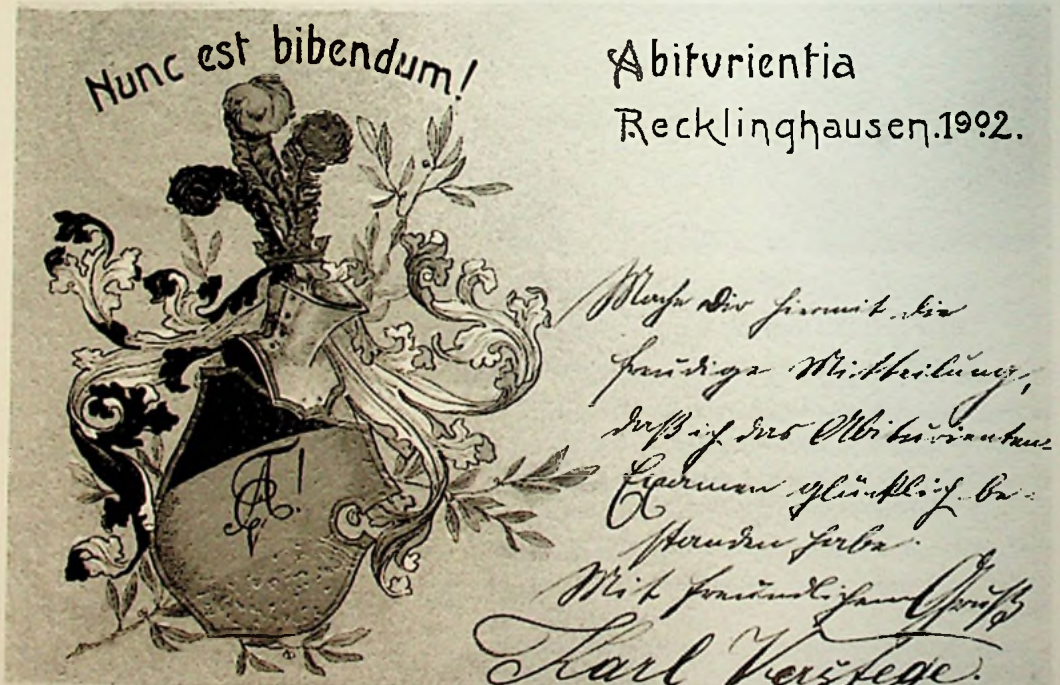 Nunc est bibendum!
Abiturientia
Recklinghausen. 1902.
A!
Mache Dir hiermit die
freudige Mitteilung,
daß ich das Abiturienten-
Examen glücklich be-
standen habe.
Mit freundlichem Gruß
Karl Verstege.